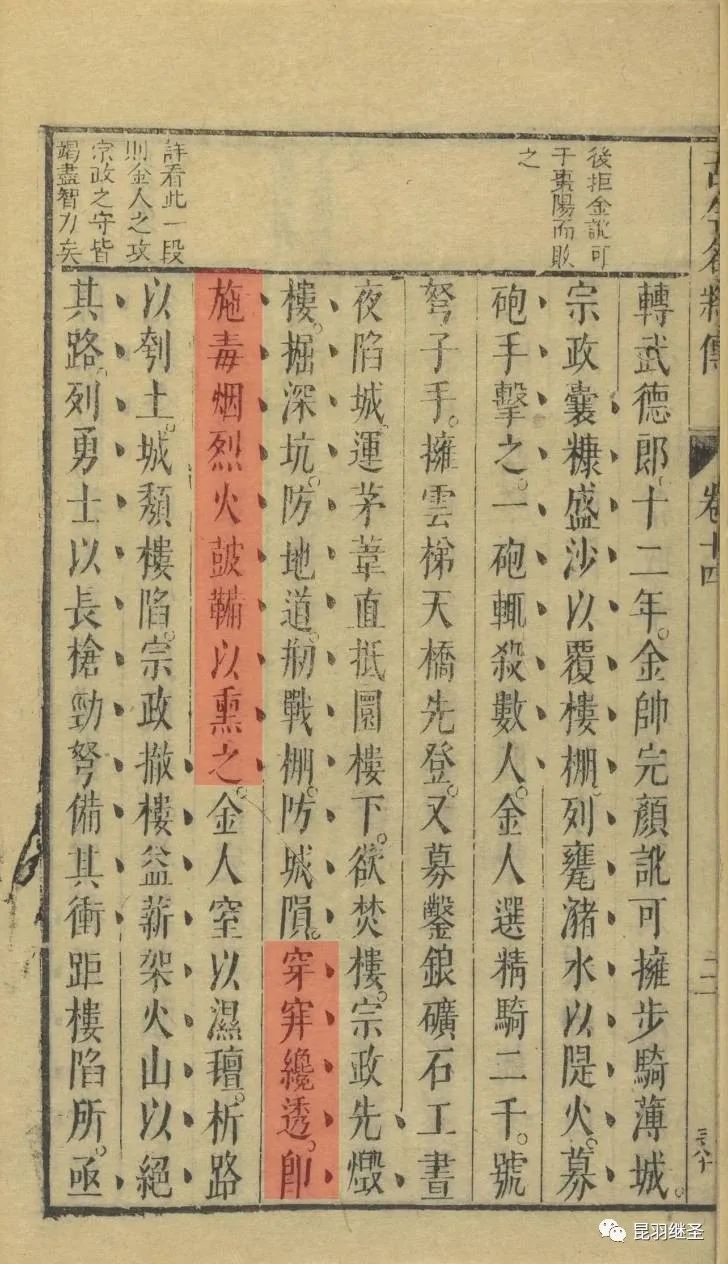 卷十四
後拒金訛可
于棗陽而敗
之
詳看此一段
則金人之攻
宗政之守皆
竭盡智力矣
轉武德郎。十二年。金帥完顏訛可擁步騎薄城。
宗政囊糠盛沙以覆樓棚。列甕瀦水以隄火。募
砲手擊之。一砲輒殺數人。金人選精騎二千。號
弩子手。擁雲梯天橋先登。又募鑿銀礦石工晝
夜陷城。運茅葦直抵圜樓下。欲焚樓。宗政先燬
樓。掘深坑。防地道。剏戰棚。防城隕。穿穽纔透。卽
施毒烟烈火皷鞴以熏之。金人窒以濕氊。析路
以刳土。城頹樓陷。宗政撤樓益薪架火山以絕
其路。列勇士以長槍勁弩備其衝。距樓陷所。亟
昆羽继圣